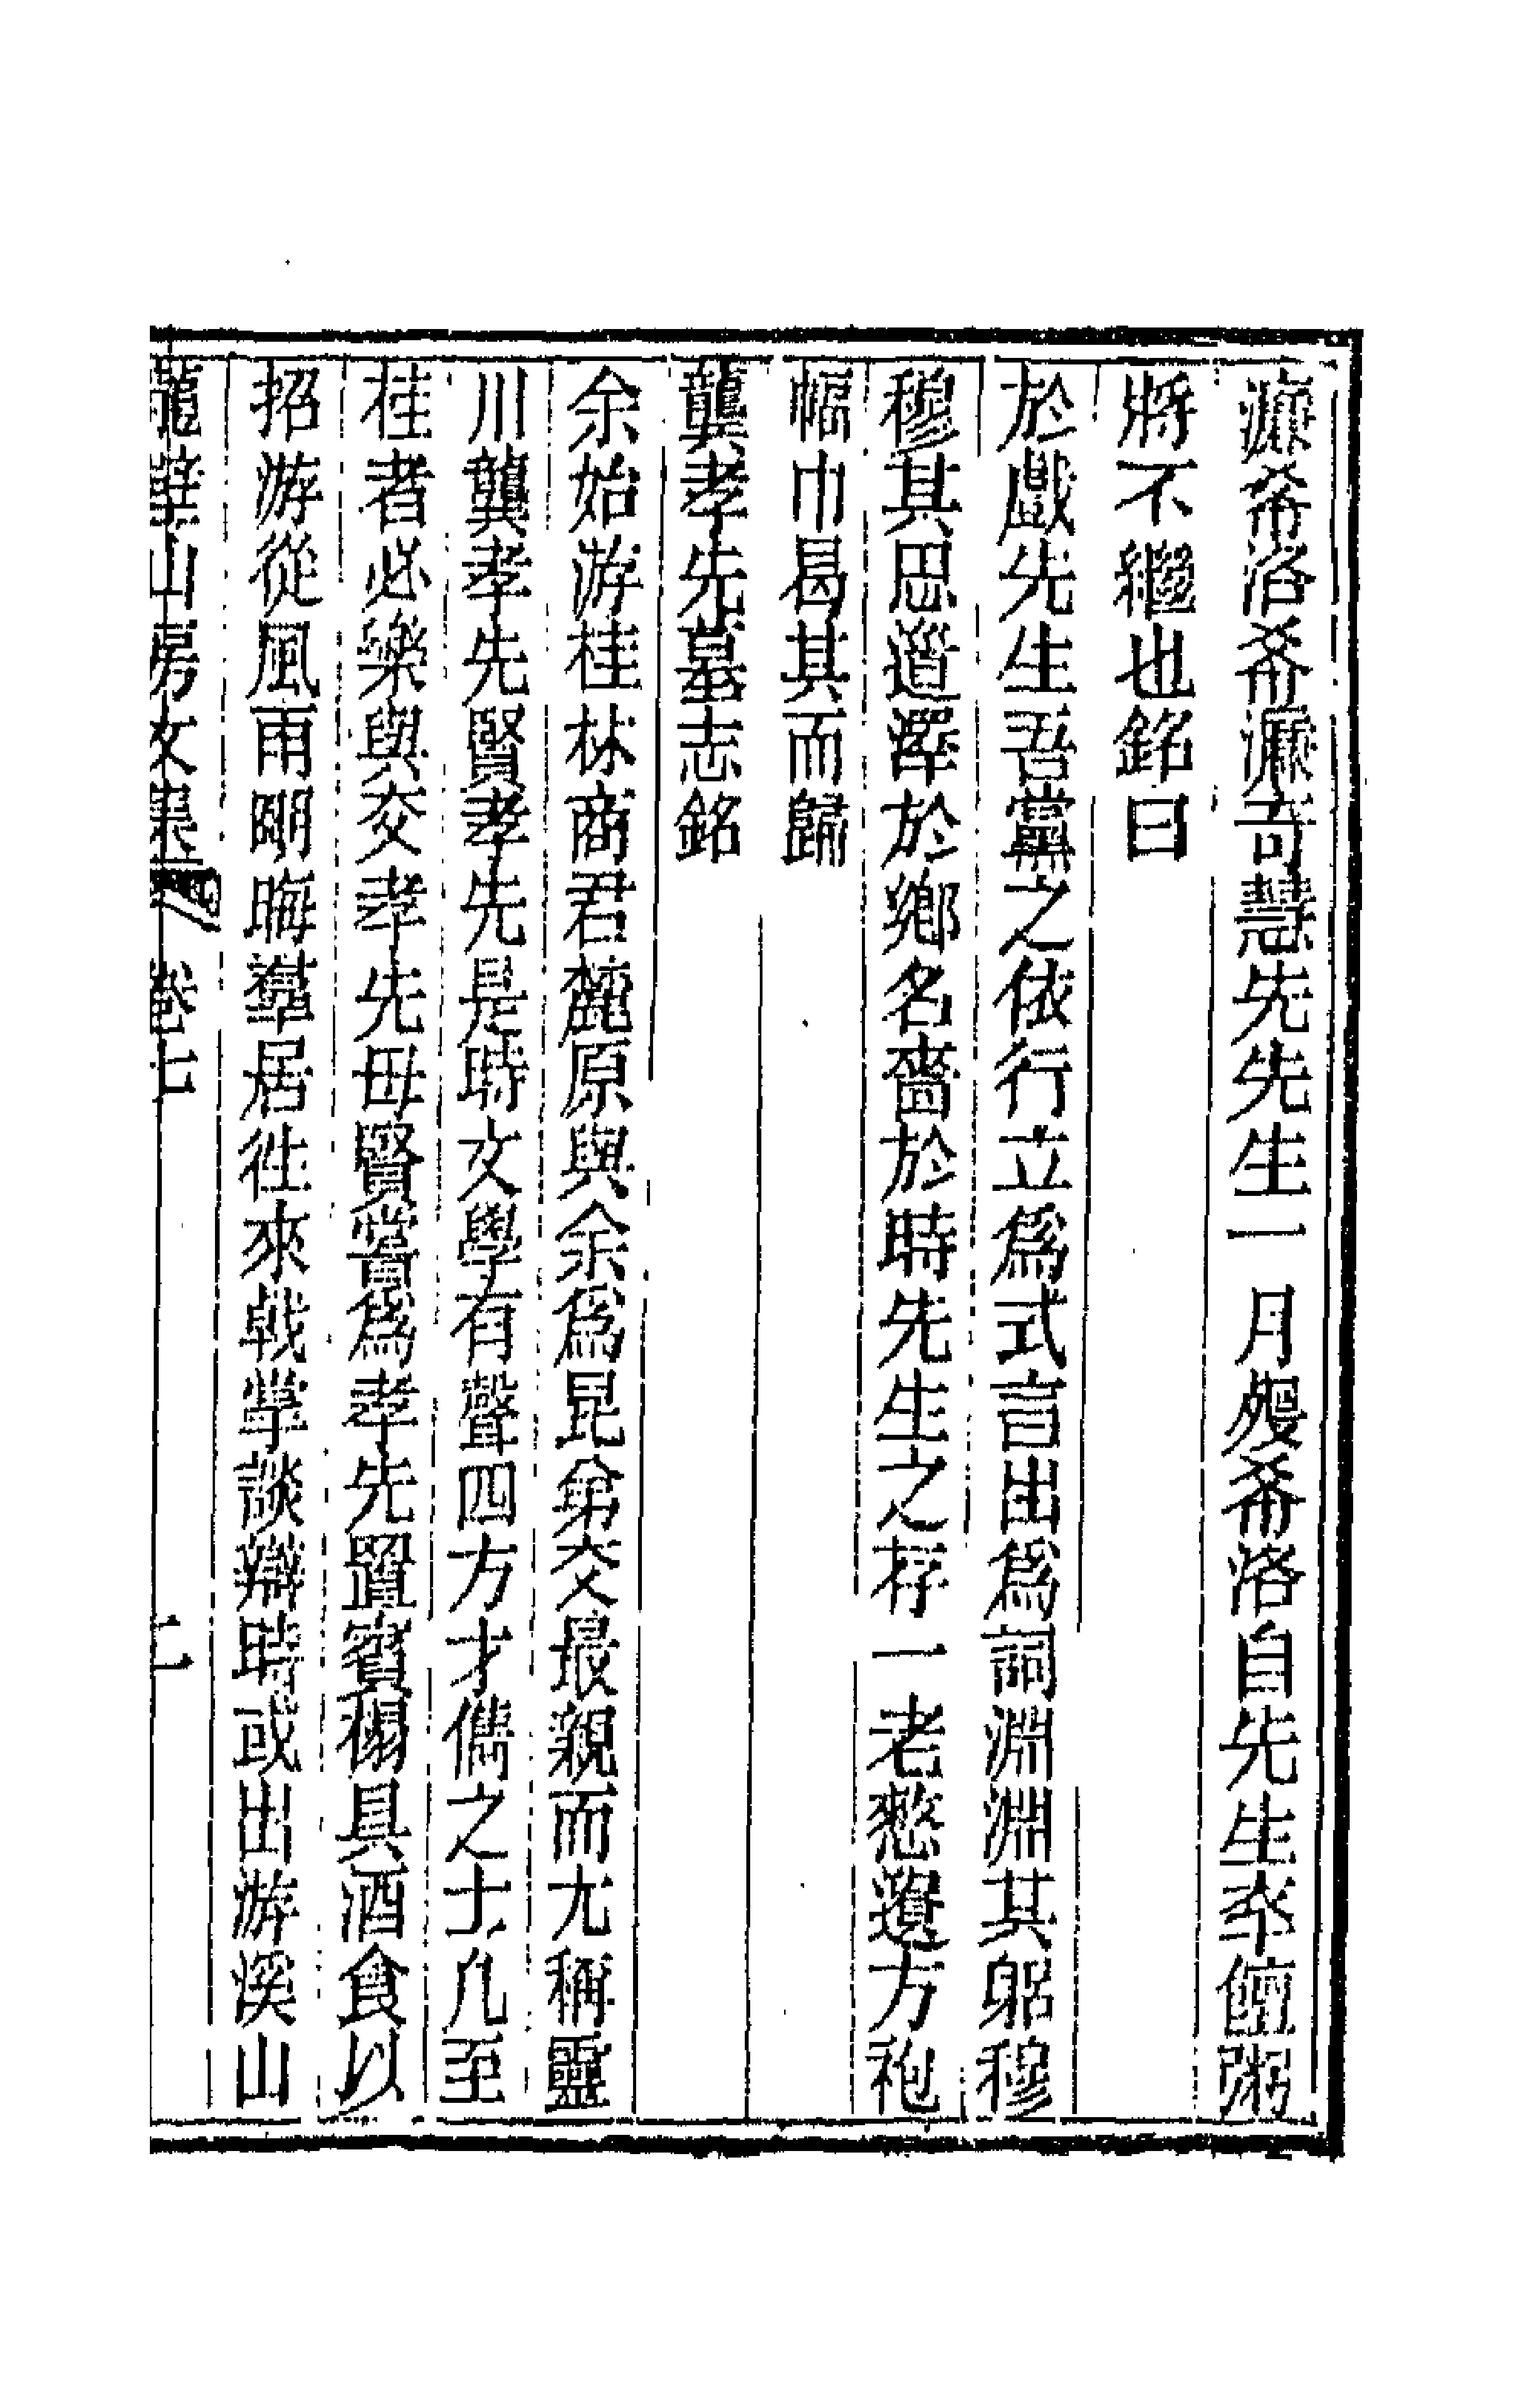 濂希洛希濂奇慧先先生一月歿希洛自先生卒饘粥
將不繼也銘曰
於戲先生吾黨之依行立爲式言出爲詞淵淵其躬穆
穆其思道澤於鄉名嗇於時先生之存一老憖遺方袍
幅巾曷其而歸
龔孝先墓志銘
余始游桂林商君麓原與余爲昆弟交最親而尤稱靈
川龔孝先賢孝先是時文學有聲四方才儁之士凡至
桂者必樂與交孝先母賢嘗爲孝先置賓榻具酒食以
招游從風雨明晦羣居往來戟掌談辯時或出游溪山
龍壁山房文集 卷七 二